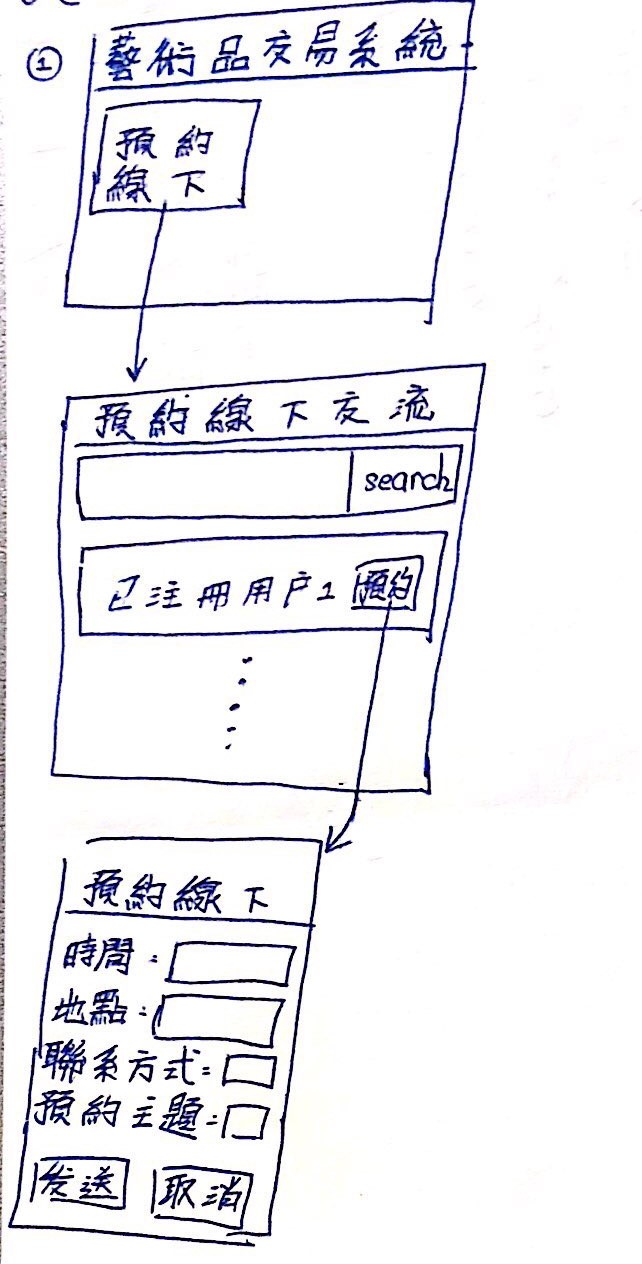 ①
藝術品交易系統
預約
線下
預約線下交流
search
已注冊用户1 預約
預約線下
時間:
地點:
聯系方式:
預約主題:
发送 取消